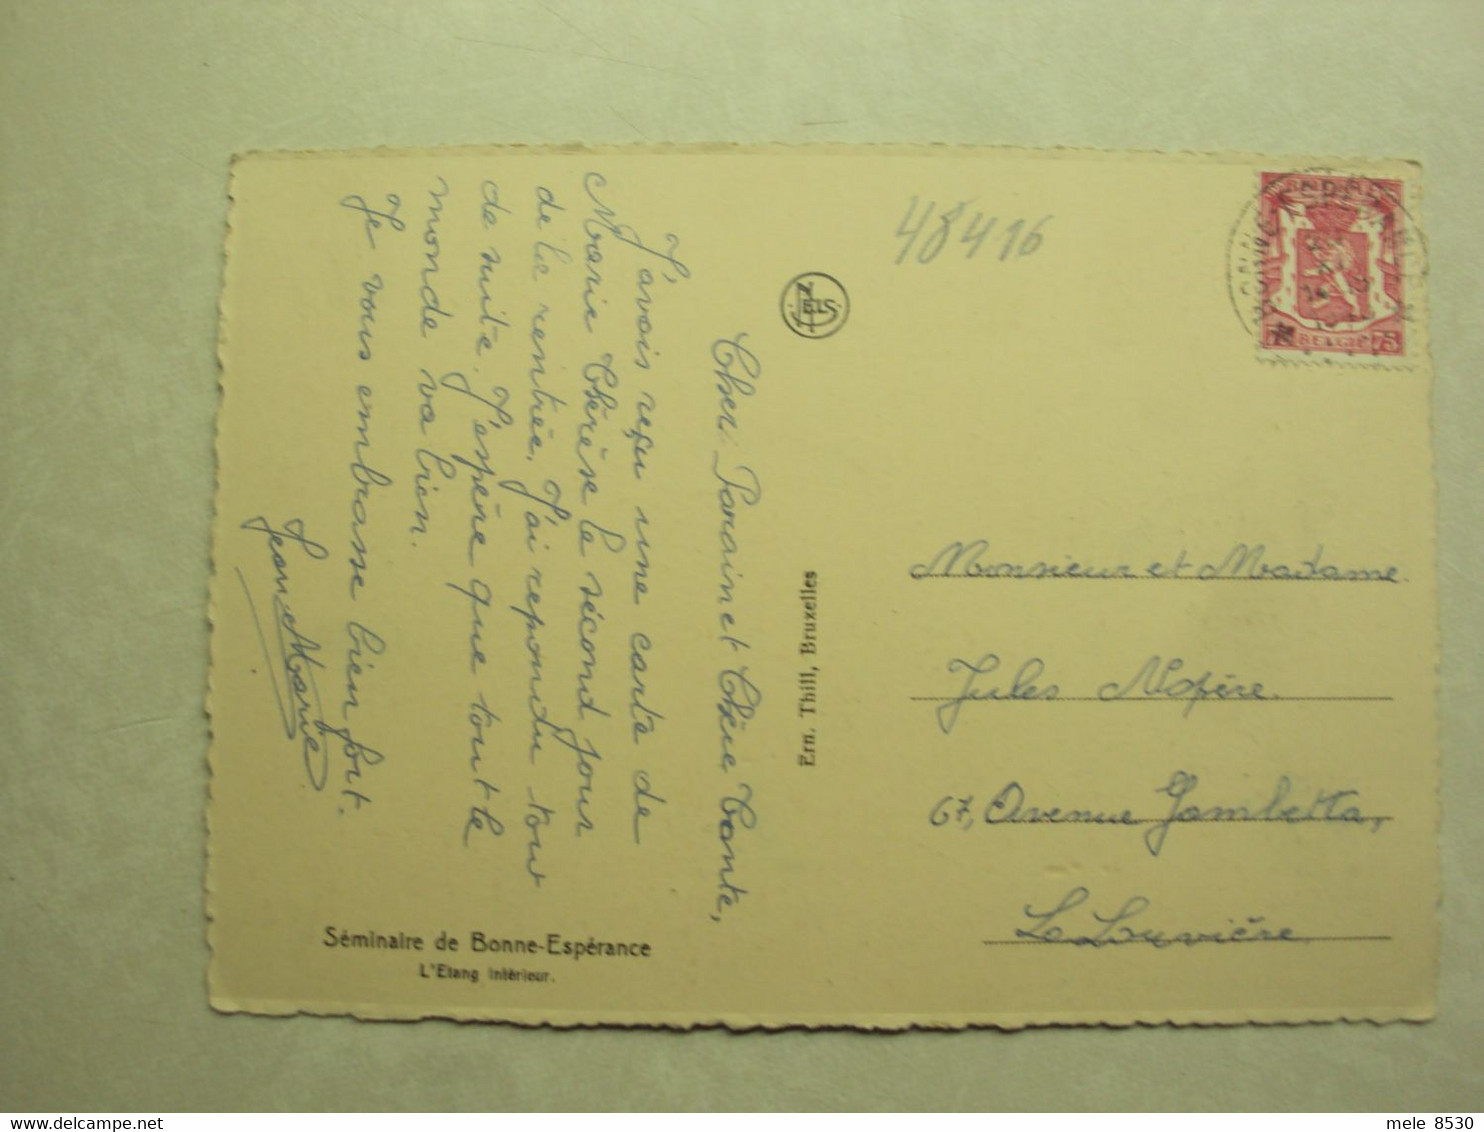 Cher Parrain et Chère Tante,
J'avois reçu une carte de
Marie Thérèse le sécond jour
de la rentrée. J'ai repondu tout
de suite. J'espère que tout le
monde va bien.
Je vous embrasse bien fort.
Jean Marie
Séminaire de Bonne-Espérance
L'Etang intérieur.
NELS
Ern. Thill, Bruxelles
48416
BELGIE 75
Monsieur et Madame
Jules
67, Avenue Gambetta,
La Louvière
mele 8530